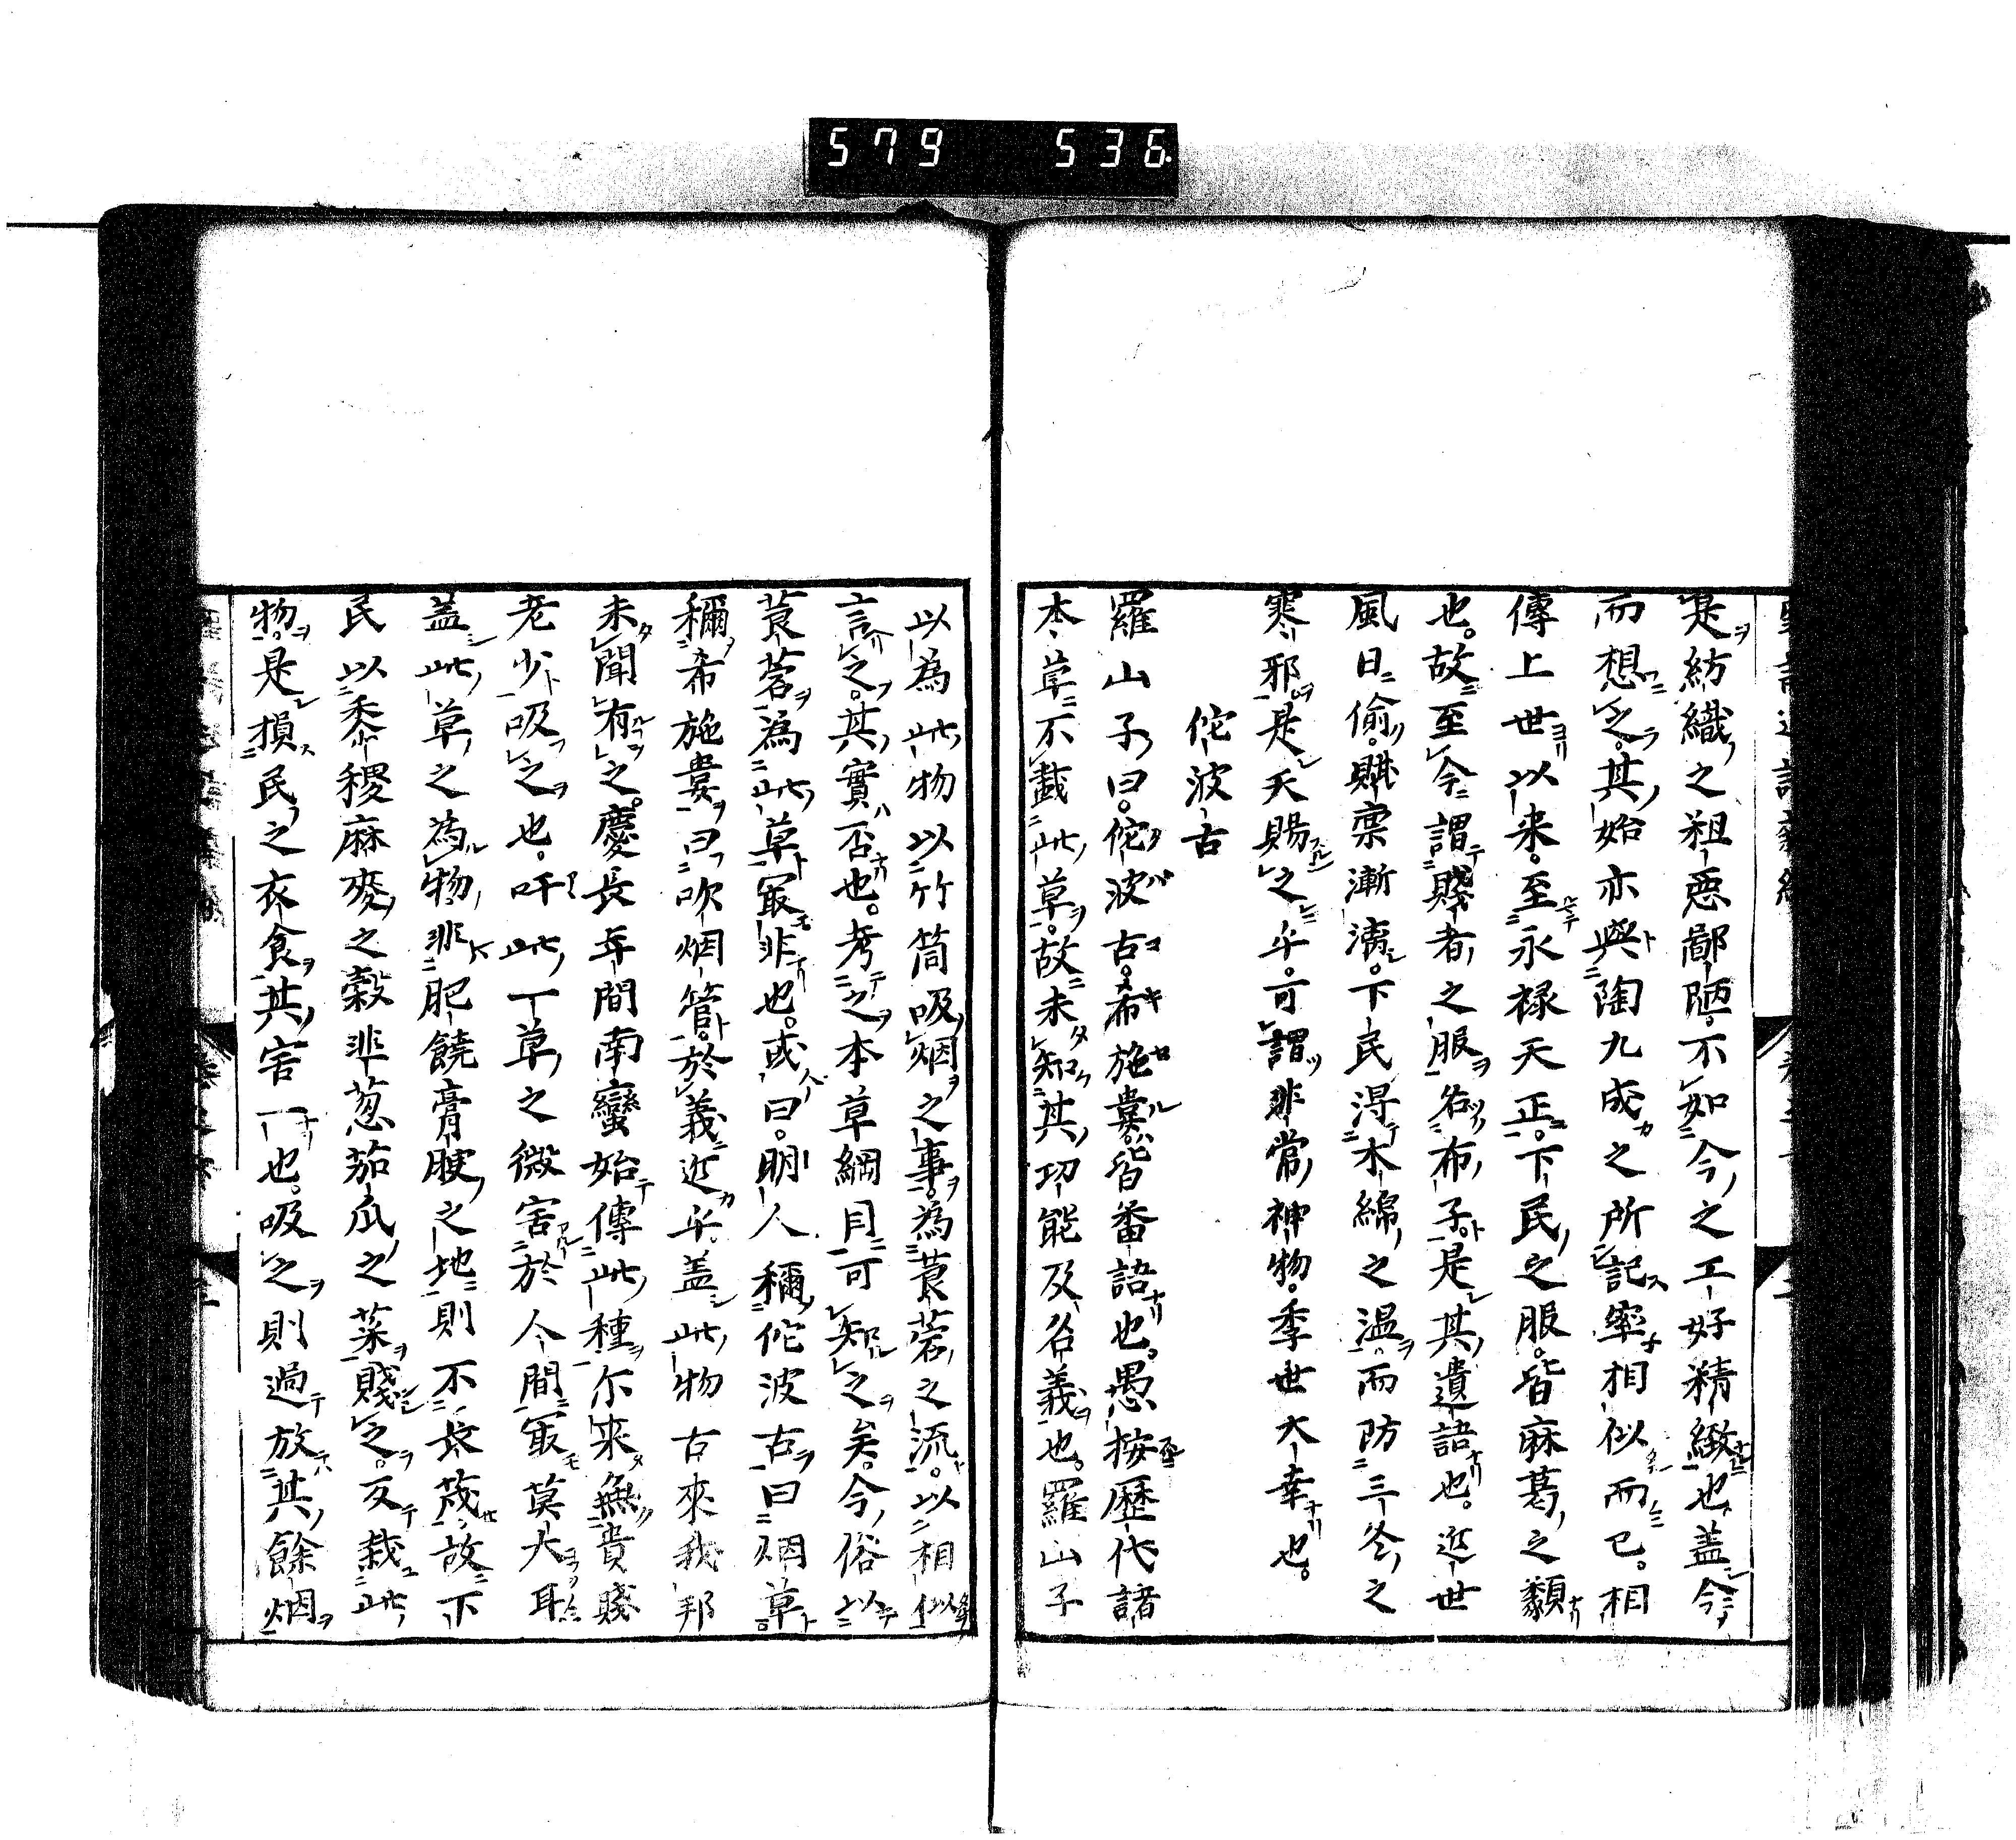 579 536
是紡織之粗悪鄙陋不如今之工好精緻也盖今
而想之其始亦與陶九成之所記率相似而已相
傳上世以来至永禄天正下民之服皆麻葛之類
也故至今謂賤者之服名布子是其遺語也近世
風日偷賦稟漸濤下民得木綿之温而防三冬之
寒邪是天賜之乎可謂非常神物季世大幸也
佗波古
羅山子曰佗波古希施婁皆番語也愚按歷代諸
本草不載此草故未知其功能及名義也羅山子
以為此物以竹筒吸烟之事為莨菪之流以相似
言之其實否也考之本草綱目可知之矣今俗以
莨菪為此草㝡非也或曰明人稱佗波古曰烟草
稱希施婁曰吹烟管於義近乎盖此物古來我邦
未聞有之慶長年間南蠻始傳此種尓来無貴賤
老少吸之也吁此一草之微害於人間㝡莫大耳
盖此草之為物非肥饒膏腴之地則不長茂故下
民以黍稷麻麥之穀非葱茄瓜之菜賤之反栽此
物是損民之衣食其害一也吸之則過放其餘烟